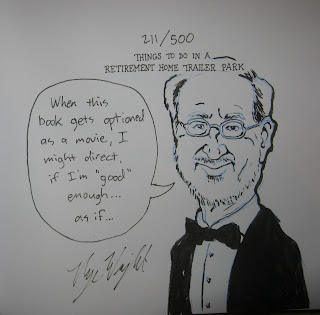 211/500
THINGS TO DO IN A
RETIREMENT HOME TRAILER PARK
When this
book gets optioned
as a movie, I
might direct,
if I'm "good"
enough...
as if...